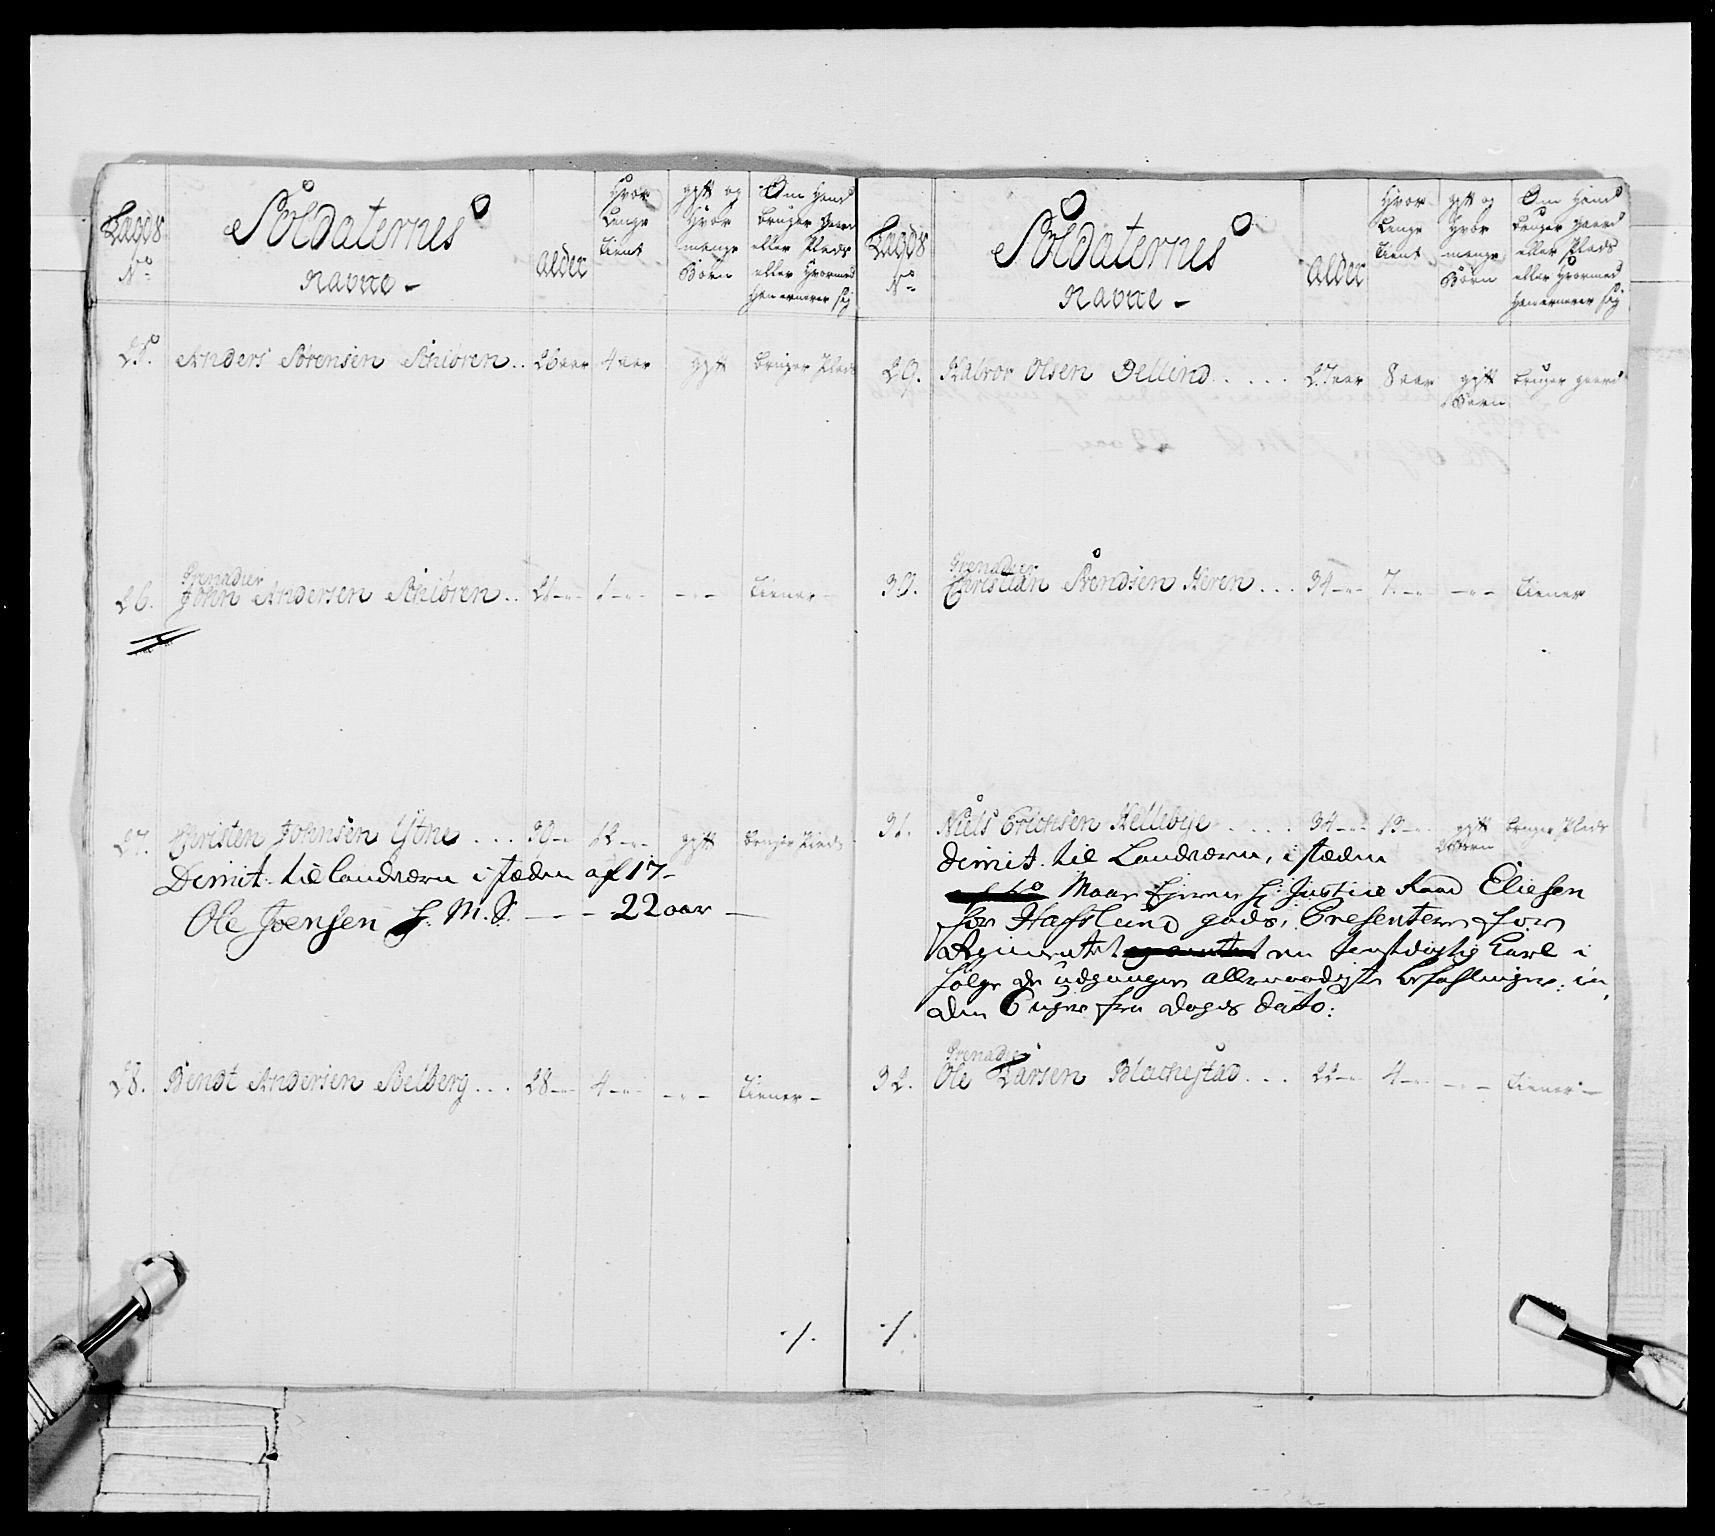 Lægds No
Soldaternes Navne -
alder
Hvor Lenge tient
gift og Hvor mange Börn
Om Hand bruger gaard eller Plads eller Hvormed Han ernerer sig
25. Anders Sörensen Schiören .. 26 aar 4 aar gift bruger Plads
Grenadier
26. John Andersen Schiören .. 2 - " - - " - tiener -
27. Christen Johnsen Ystne .... 30 - " 12 - " - gift bruger Plads
Dimit: til Landværn i stæden af 17 -
Ole Joensen f. M. S. - - - 22 aar -
28. Bendt Andersen Solberg ... 28 - " - 4 - " - - " - tiener -
./.
Lægds No
Soldaternes Navne -
alder
Hvor Lenge tient
gift og Hvor mange Börn
Om Hand bruger gaard eller Plads eller Hvormed Han ernerer sig
29. Halvor Olsen Dellind ..... 27 aar 8 aar gift bruger gaard
Börn
Grenadier
30. Christian Svendsen Heren ... 34 - " - 7 - " - - " - tiener
31. Niels Erichsen Hellebye ..... 34 - " - 13 - " - gift bruger Plads
Börn
Dimit. til Landværn, i stæden
Maae Hr Justice Raad Eliesen
for Hafslund gods, Presentere for
Regimentet en tienstdygtig Karl i
følge de udgangne allernaadigste befahlninger, in
den 6 uger fra dagis dato:
Grenadier
32. Ole Larsen Blachestad ... 22 - " - 4 - " - - " - tiener -
./.